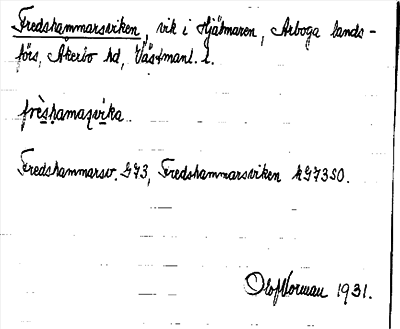 Fredshammarsviken, vik i Hjälmaren, Arboga lands-
förs, Åkerbo hd, Västmanl. l.
frèshamaṣvika
Fredshammarsv. G73, Fredshammarsviken kG73SO.
Olof Norman 1931.